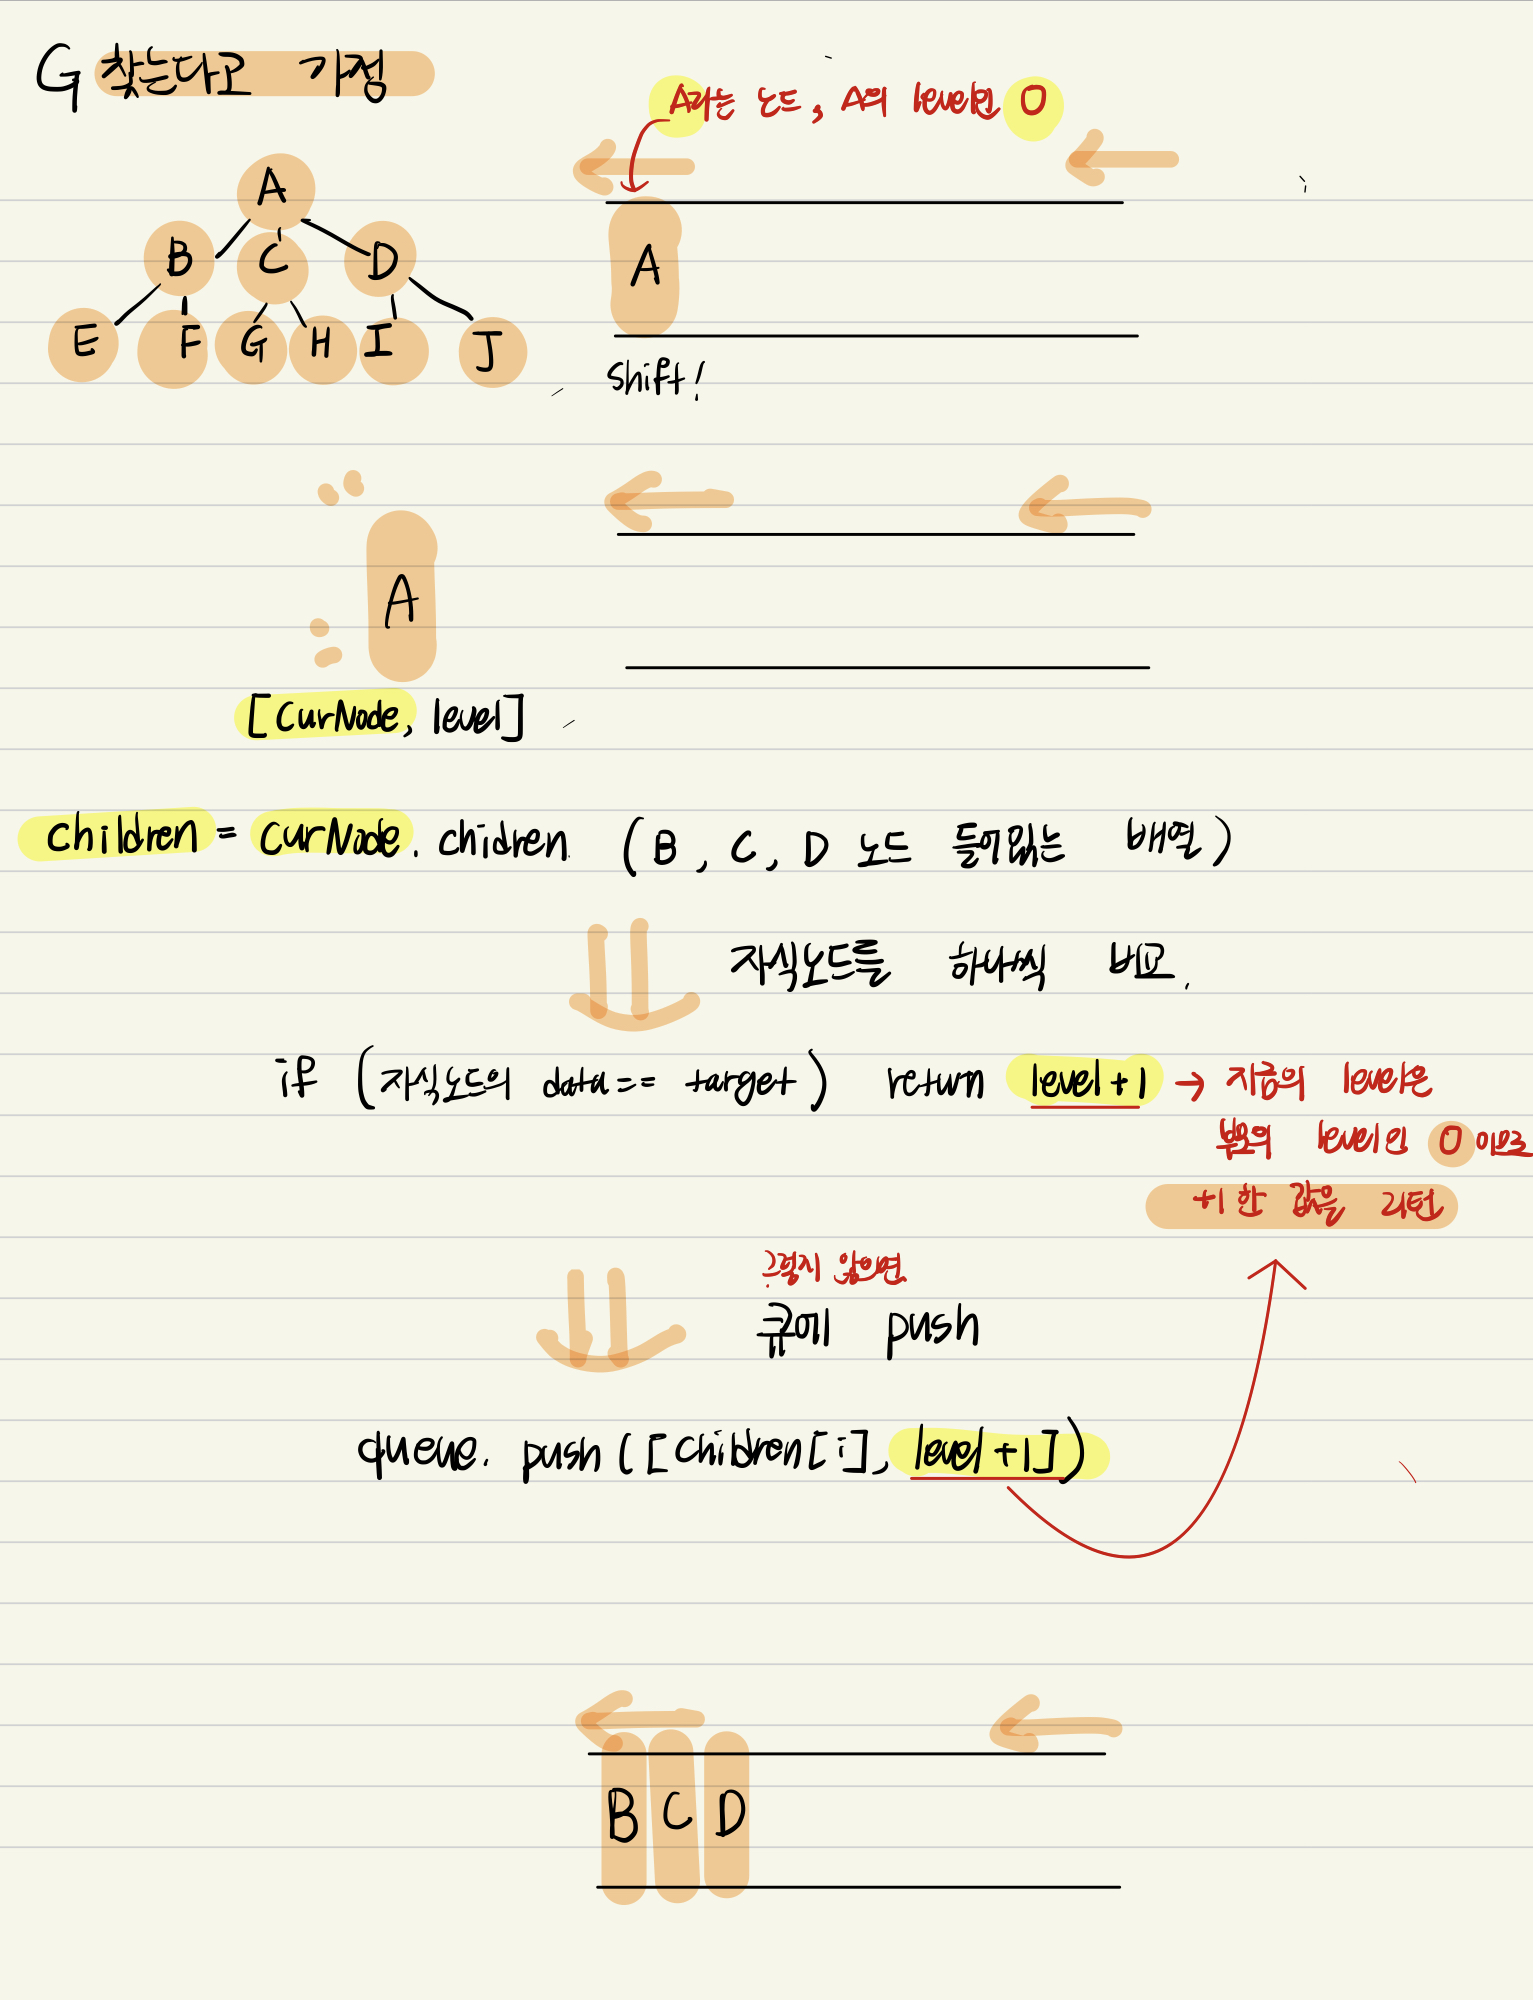 G 찾는다고 가정
A라는 노드, A의 level인 0
A
B C D
E F G H I J
A
shift!
A
[curNode, level]
children = curNode. chidren (B, C, D 노드 들어있는 배열)
자식노드를 하나씩 보고.
if (자식노드의 data == target) return level+1 → 지금의 level은
부모의 level인 0 이므로
+1 한 값을 리턴
그렇지 않으면
큐에 push
queue. push ([children[i], level+1])
B C D